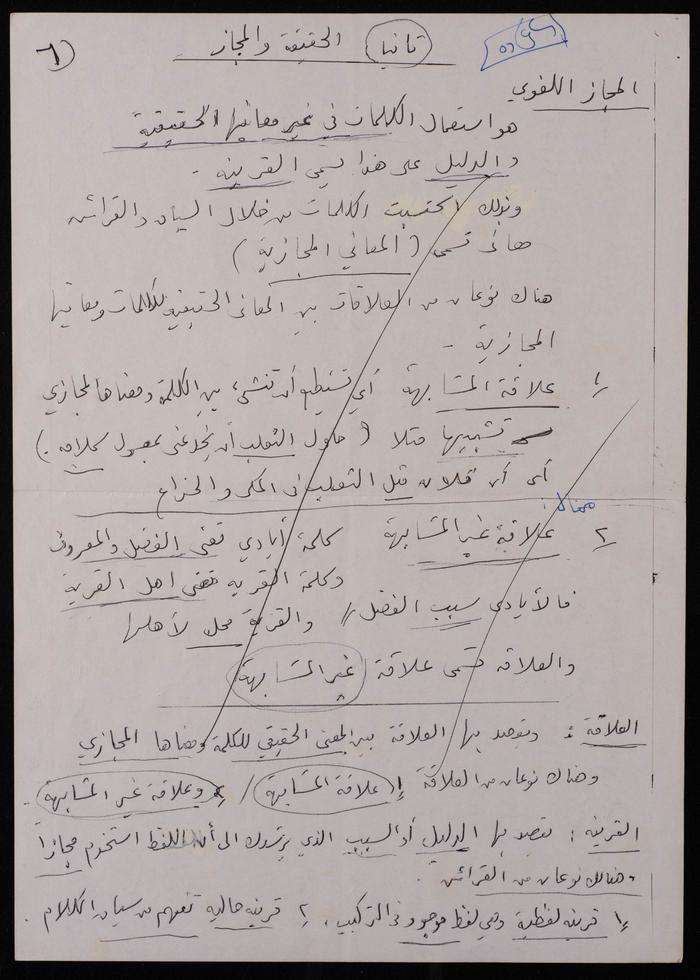 ٦
ثانيا الحقيقة والمجاز
المجاز اللغوي
هو استعمال الكلمات في غير معانيها الحقيقية
والدليل على هذا يسمى القرينة -
وبذلك اكتسبت الكلمات من خلال السياق والقرائن
معاني تسمى (المعاني المجازية)
هناك نوعان من العلاقات بين المعاني الحقيقية للكلمات ومعانيها
المجازية -
١/ علاقة المشابهة أي تستطيع أن تنشيء بين الكلمة ومعناها المجازي
تشبيها مثلا (حاول الثعلب أن يخدعني بمعسول كلامه.)
أي أن فلان مثل الثعلب في المكر والخداع
مثال:
٢/ علاقة غير المشابهة كلمة أيادي تعني الفضل والمعروف
وكلمة القرية تعني اهل القرية
فالأيادي سبب الفضل // والقرية محل لأهلها
والعلاقة تسمى علاقة غير المشابهة
العلاقة : ونقصد بها العلاقة بين المعنى الحقيقي للكلمة ومعناها المجازي
وهناك نوعان من العلاقة ١/ علاقة المشابهة / ٢ وعلاقة غير المشابهة.
القرينة : نقصد بها الدليل أو السبب الذي يرشدك الى أن اللفظ استخدم مجازاً
وهنالك نوعان من القرائن.
١/ قرينة لفظية وهي لفظ موجود في التركيب، ٢/ قرينة حالية تفهم من سياق الكلام.